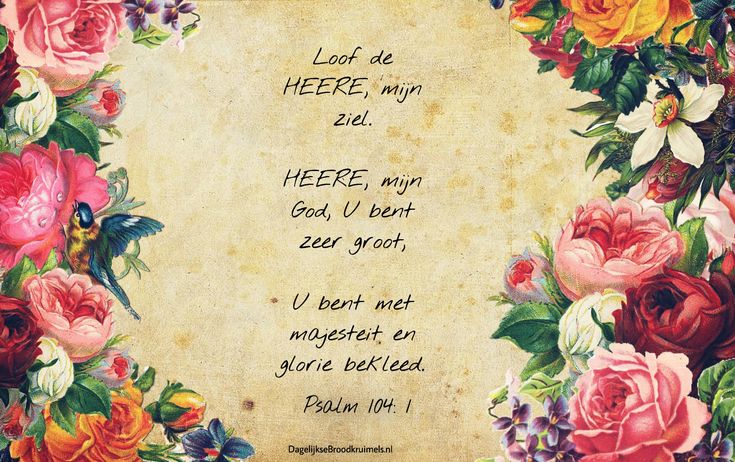 Loof de
HEERE, mijn
ziel.
HEERE, mijn
God, U bent
zeer groot,
U bent met
majesteit en
glorie bekleed.
Psalm 104: 1
DagelijkseBroodkruimels.nl